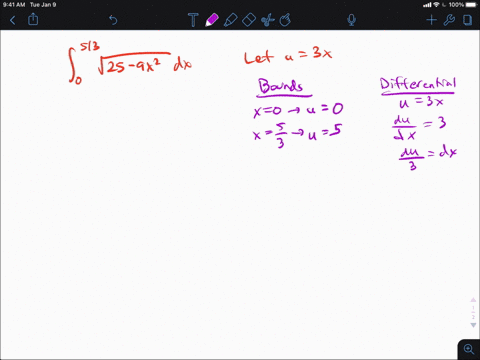 9:41 AM Tue Jan 9
100%
∫₀^{5/3} √(25-9x²) dx
Let u = 3x
Bounds
x=0 → u = 0
x = 5/3 → u = 5
Differential
u = 3x
du/dx = 3
du/3 = dx